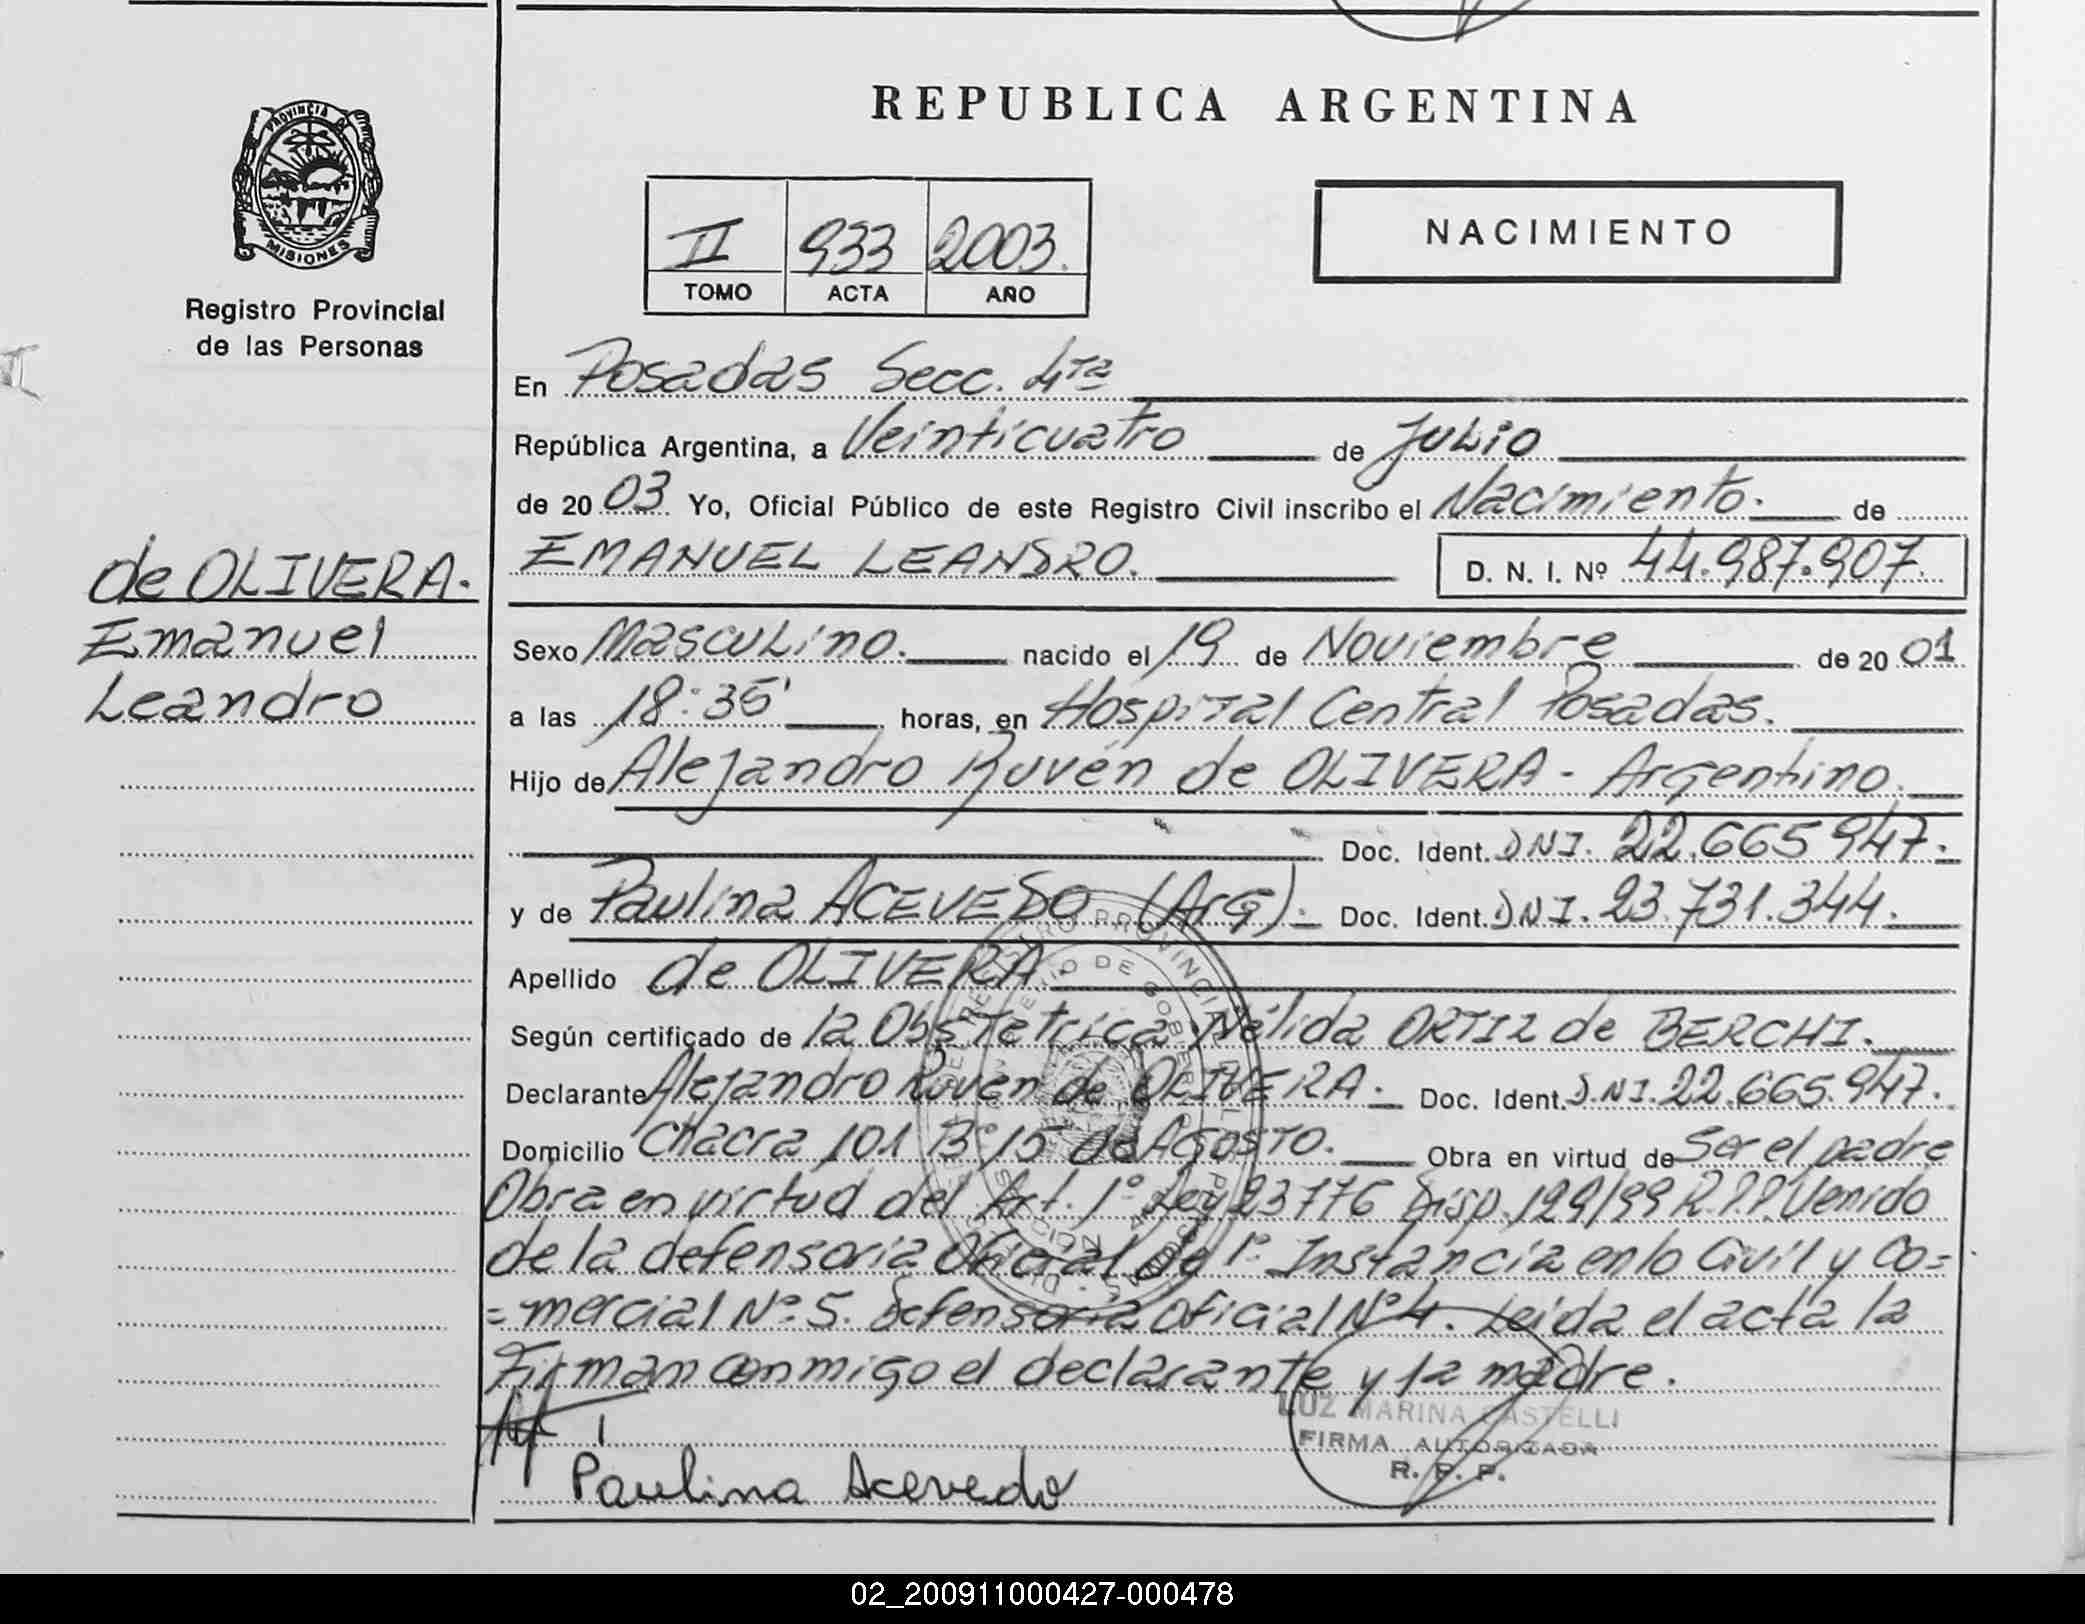 REPUBLICA ARGENTINA
PROVINCIA DE
MISIONES
Registro Provincial
de las Personas
II 933 2003.
TOMO ACTA AÑO
NACIMIENTO
de OLIVERA.
Emanuel
Leandro
En Posadas Secc. 4ta
República Argentina, a Veinticuatro de JULIO
de 20 03 Yo, Oficial Público de este Registro Civil inscribo el Nacimiento. de
EMANUEL LEANDRO. D. N. I. Nº 44.987.907.
Sexo Masculino. nacido el 19 de Noviembre de 20 01
a las 18:35' horas, en Hospital Central Posadas.
Hijo de Alejandro Ruvén de OLIVERA - Argentino.
Doc. Ident. DNI. 22.665 947.
y de Paulina ACEVEDO (Arg). Doc. Ident. DNI. 23.731.344.
Apellido de OLIVERA.
Según certificado de la Obstetrica Nélida ORTIZ de BERCHI.
Declarante Alejandro Ruven de OLIVERA. Doc. Ident. D.N.I. 22.665.947.
Domicilio Chacra 101 Bº 15 de AGOSTO. Obra en virtud de Ser el padre
Obra en virtud del Art. 1º Ley 23776 Disp. 129/99 R.P.P. Venido
de la defensoria Oficial de 1º Instancia en lo Civil y Co=
=mercial Nº 5. Defensoria Oficial Nº 4. Leida el acta la
Firman conmigo el declarante y la madre.
Paulina Acevedo
LUZ MARINA CASTELLI
FIRMA AUTORIZADA
R. P. P.
02_200911000427-000478